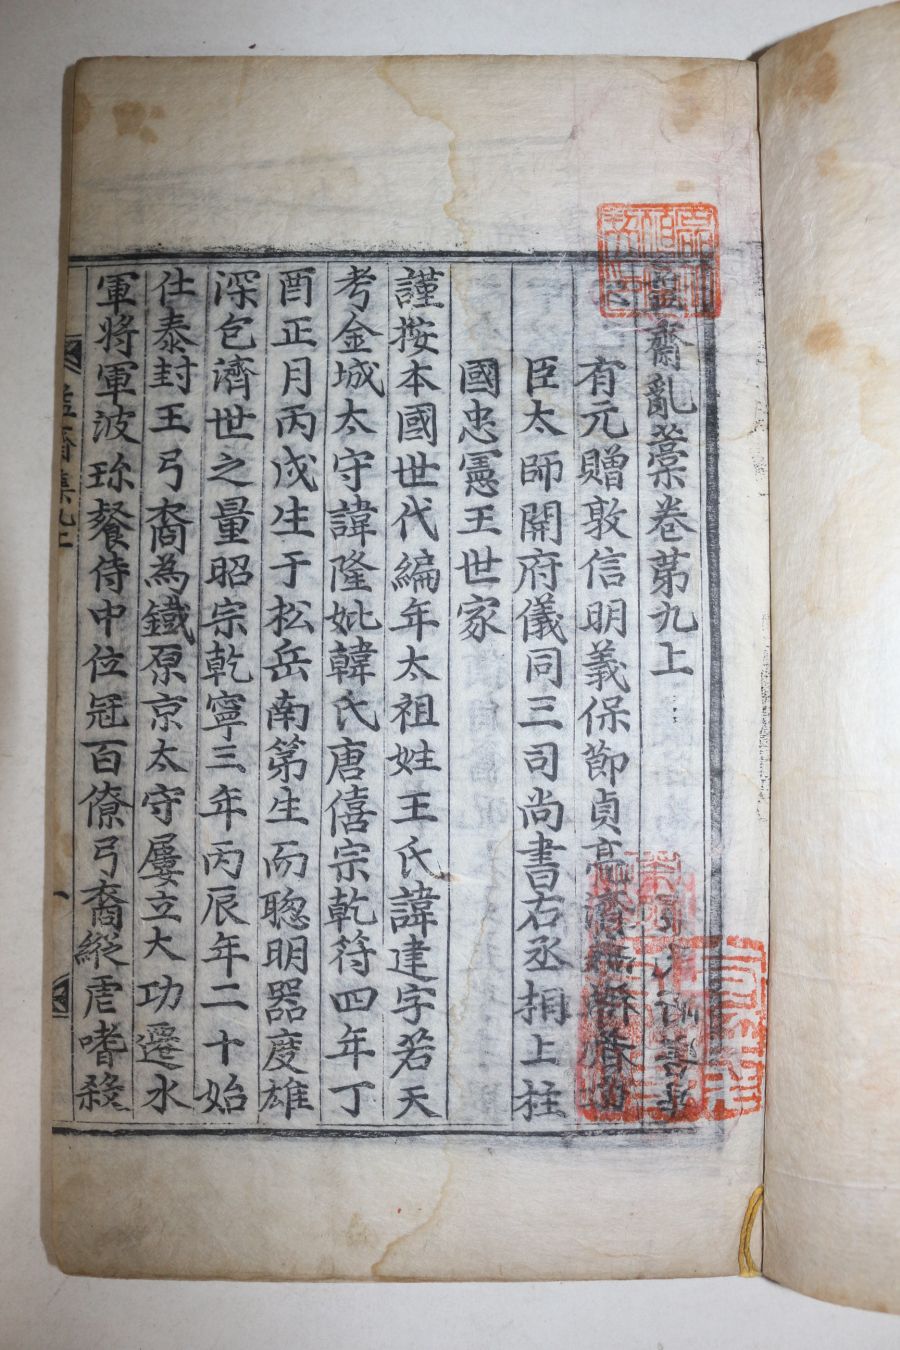 益齋亂藁卷苐九上
有元贈敦信明義保節貞亮濟
臣太師開府儀同三司尚書右丞相上柱
國忠憲王世家
謹按本國世代編年太祖姓王氏諱建字若天
考金城太守諱隆妣韓氏唐僖宗乾符四年丁
酉正月丙戌生于松岳南第生而聦明器度雄
深包濟世之量昭宗乾寧三年丙辰年二十始
仕泰封王弓裔為鐵原京太守屢立大功遷水
軍將軍波珎餐侍中位冠百僚弓裔縱虐嗜殺
益齋集九上